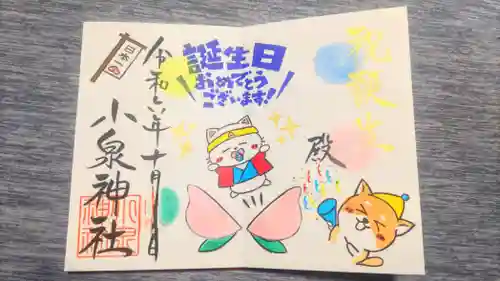 祝 誕生
誕生日
おめでとう
ございます!
殿
令和六年十月 日
日本一
小泉神社